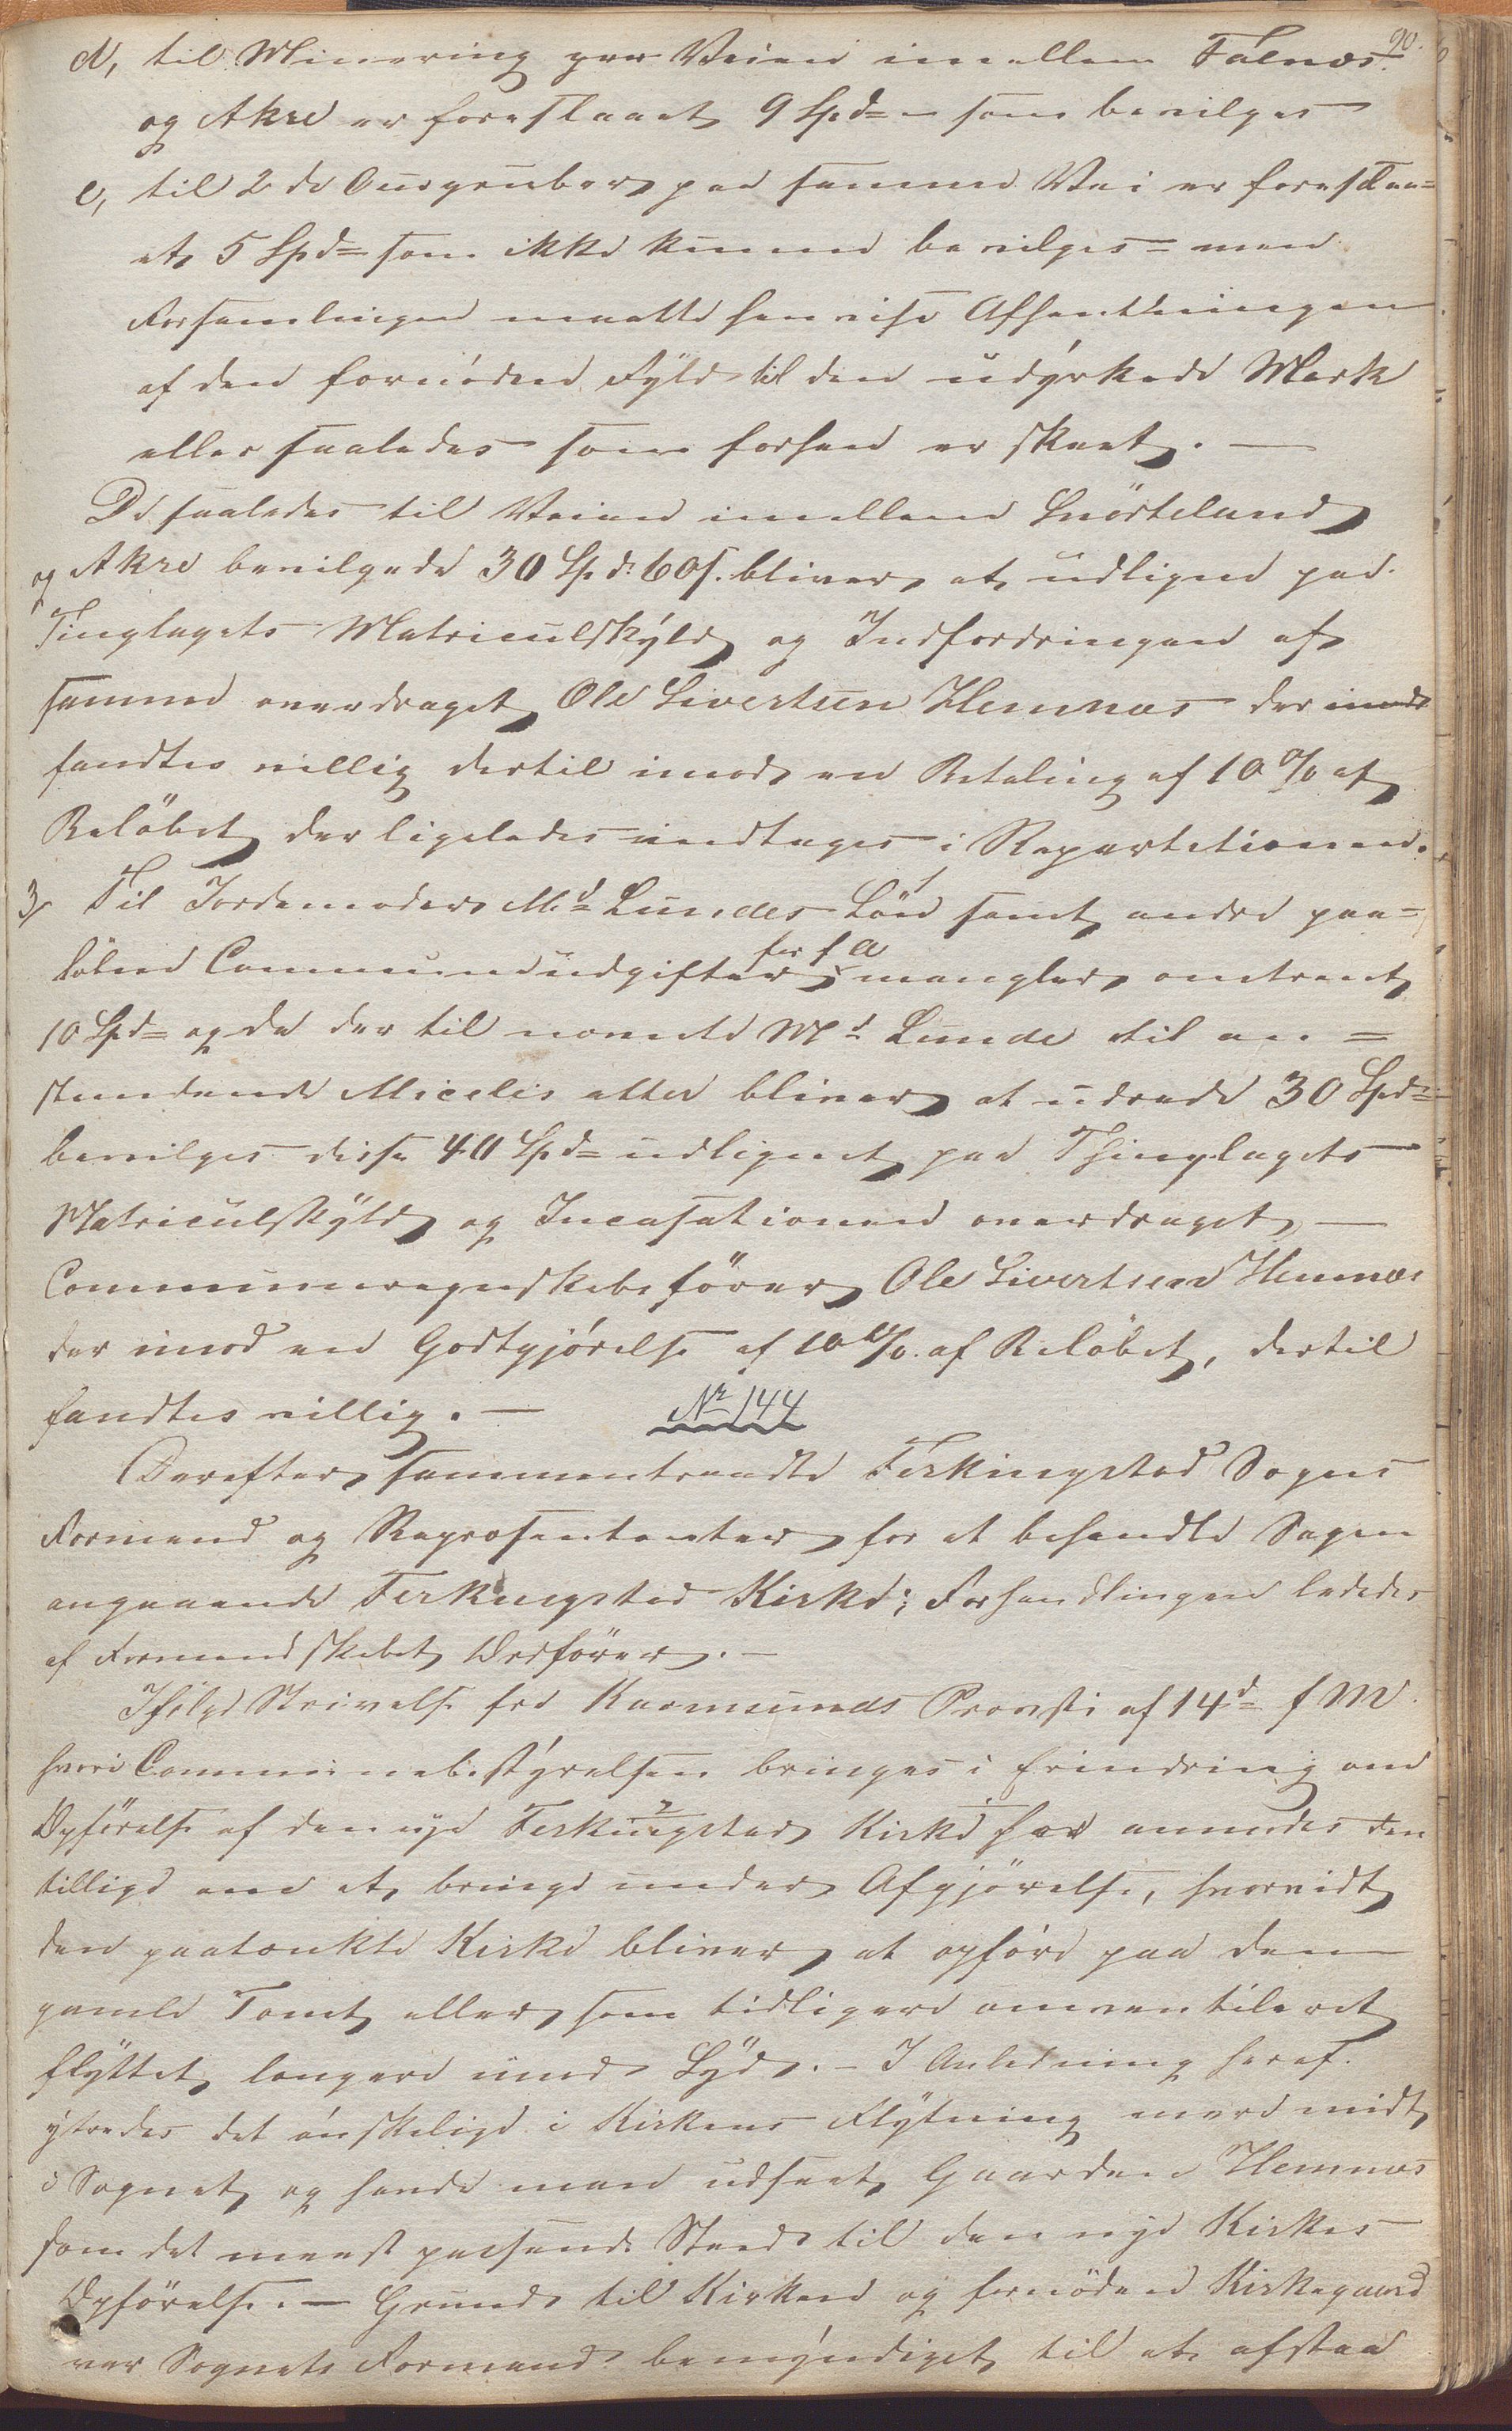 90.
d, til Minering paa Veien imellem Falnæs
og Akre er foreslaaet 9 Spd= – som bevilges
e, til 2de Ourgruber paa samme Vei er foreslaa=
et 5 Spd= som ikke kunne bevilges = men
Forsamlingen maatte henvise Afhentningen
af den fornödne Fyld til den udyrkede Mark
eller saaledes som forhen er skeet. —
De saaledes til Veien imellem Snörteland
og Akre bevilgede 30 Spd. 60 s. bliver at udligne paa
Tinglagets Matriculskyld og Indfordringen af
samme overdraget Ole Sivertsen Hemnæs der
fandtes villig dertil imod en Betaling af 10 % af
Belöbet der ligeledes indtages i Repartitionen.
3, Til Jordemoder Md= Lundes Lön samt andre paa=
löbne Communeudgifter for f A mangler omtrent
10 Spd= og da der til nævnte Md Lunde til an=
stundende Micelis atter bliver at udrede 30 Spd=
bevilges disse 40 Spd= udlignet paa Thinglagets
Matriculskyld og Incasationen overdraget —
Communeregnskabsförer Ole Sivertsen Hemnæs
der imod en Godtgjörelse af 10 %. af Belöbet, dertil
fandtes villig. —
No 144
Derefter sammentraadte Ferkingstad Sogns
Formænd og Repræsentanter for at behandle Sagen
angaaende Ferkingstad Kirke; Forhandlingen lededes
af Formandskabet Ordförer. —
Ifölge Skrivelse fra Karmsunds Provsti af 14d= f M.
hvori Communebestyrelsen bringes i Erindring om
Opförelse af den nye Ferkingstad Kirke anmodes den
tillige om at bringe under Afgjörelse, hvorvidt
den paatænkte Kirke bliver at opföre paa den
gamle Tomt eller som tidligere omventileret
flyttet længere imod Syd. – I Anledning heraf
ytredes det önskelige i Kirkens Flytning mere midt
i Sognet og havde man udseet Gaarden Hemnæs
som det meest passende Sted til den nye Kirkes
Opförelse. — Grund til Kirken og fornöden Kirkegaard
var Sognets Formænd bemyndiget til at afstaa